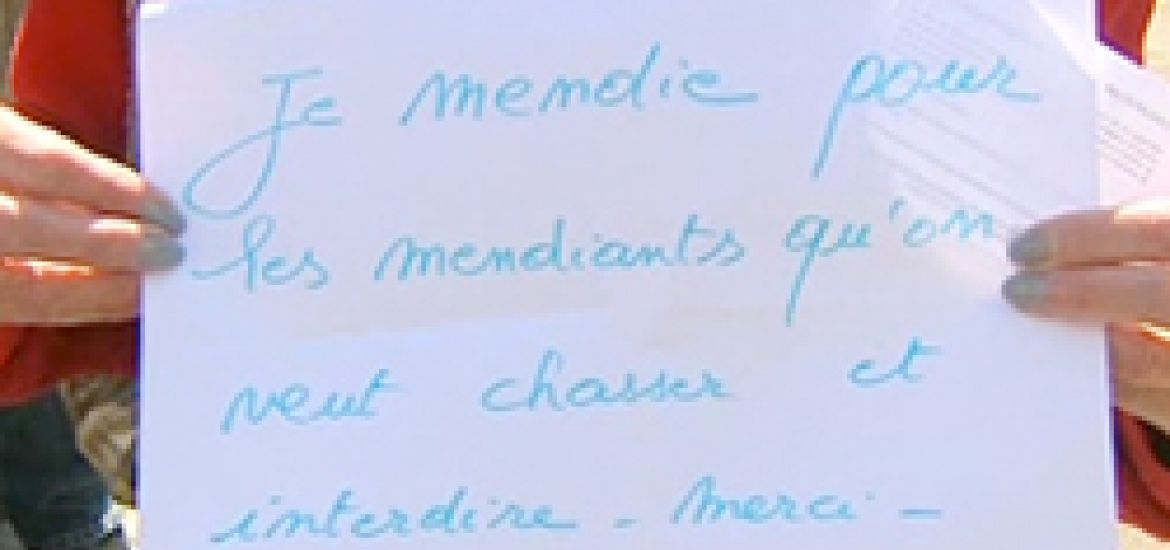 Je mendie pour
les mendiants qu'on
veut chasser et
interdire - merci -